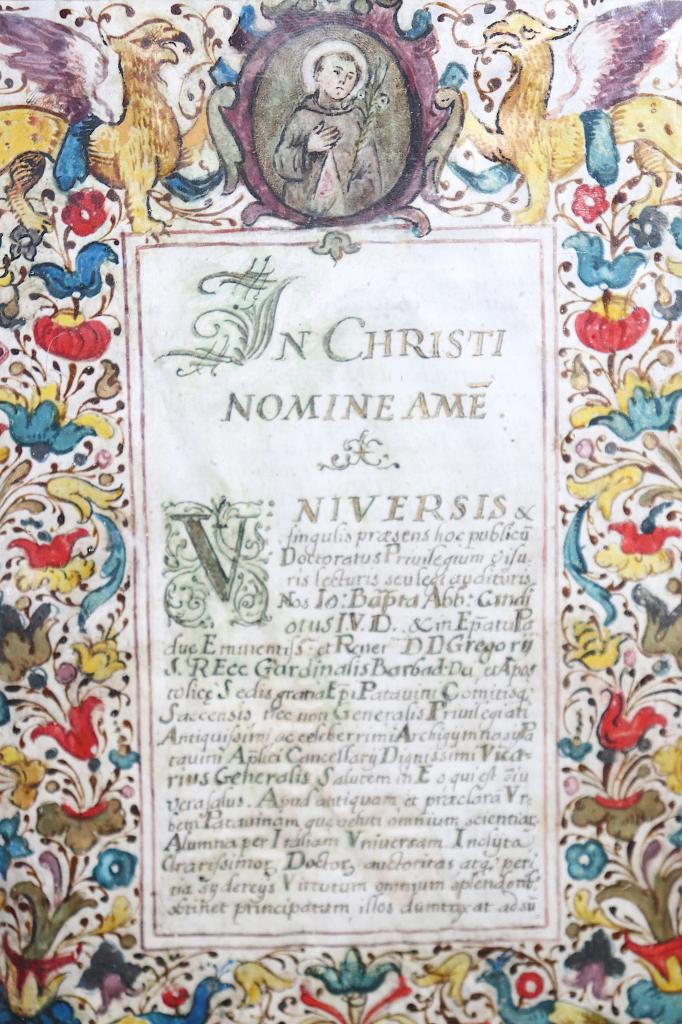 IN CHRISTI
NOMINE AMĒ.
VNIVERSIS &
singulis præsens hoc publicū
Doctoratus Priuilegium visu-
ris lecturis seu legi audituris
Nos Io: Bapta Abb: Candi
otus I.V.D. & in Epatu Pa
due Eminentiss. et Reuer. D D Gregorij
S. R Ecc Cardinalis Barbad Dei, et Apos
tolicę Sedis gratia Epi Patauini Comitisq;
Saccensis, nec non Generalis Priuilegiati
Antiquissimi ac celeberrimi Archigymnasij Pa
tauini Aplici Cancellarij Dignissimi Vica-
rius Generalis Salutem in Eo qui est oiu
vera salus. Apud antiquam, et præclara Vr
bem Patauinam que veluti omnium scientiar
Alumna per Italiam Vniuersam Inclyta,
Clarissimor. Doctor, auctoritas atq; peri
tia sydereys Virtutum omnium splendorib;
obtinet principatum, illos dumtaxat ad sū